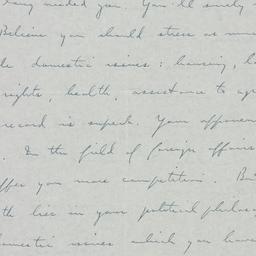 long needed you. You'll surely
Believe you should stress as much
domestic issues: housing,
rights, health, assistance to
record is superb. Your opponent
. In the field of foreign affairs
offer you more competition. But
lies in your political philoso
domestic issues which you have